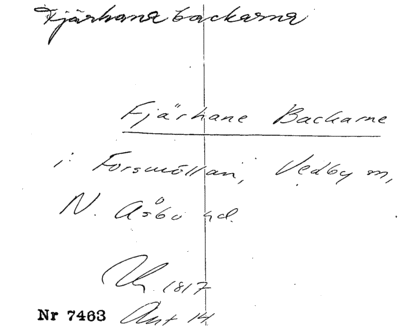 Fjärhanebackarna
Fjärhane Backarne
i Forsmöllan, Vedby m,
N. Åsbo hd.
1817
Nr 7463 Ant 14.